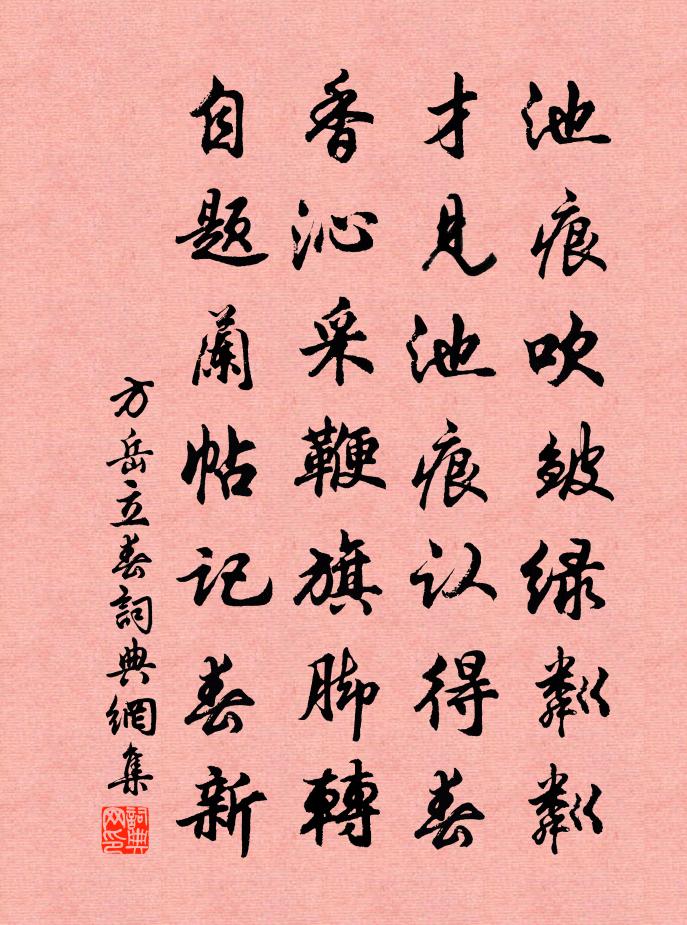 池痕吹皱绿粼粼
才见池痕认得春
香沁采鞭旗脚轉
自题蘭帖记春新
方岳立春詞典網集
詞典网印